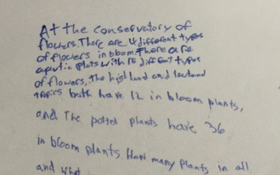 At the conservatory of
flowers. There are 4 different types
of flowers in bloom. There are
aquatic plants with 15 different types
of flowers, The highland and lowland
both have 12 in bloom plants,
and The potted plants have 36
in bloom plants. How many plants in all
and what